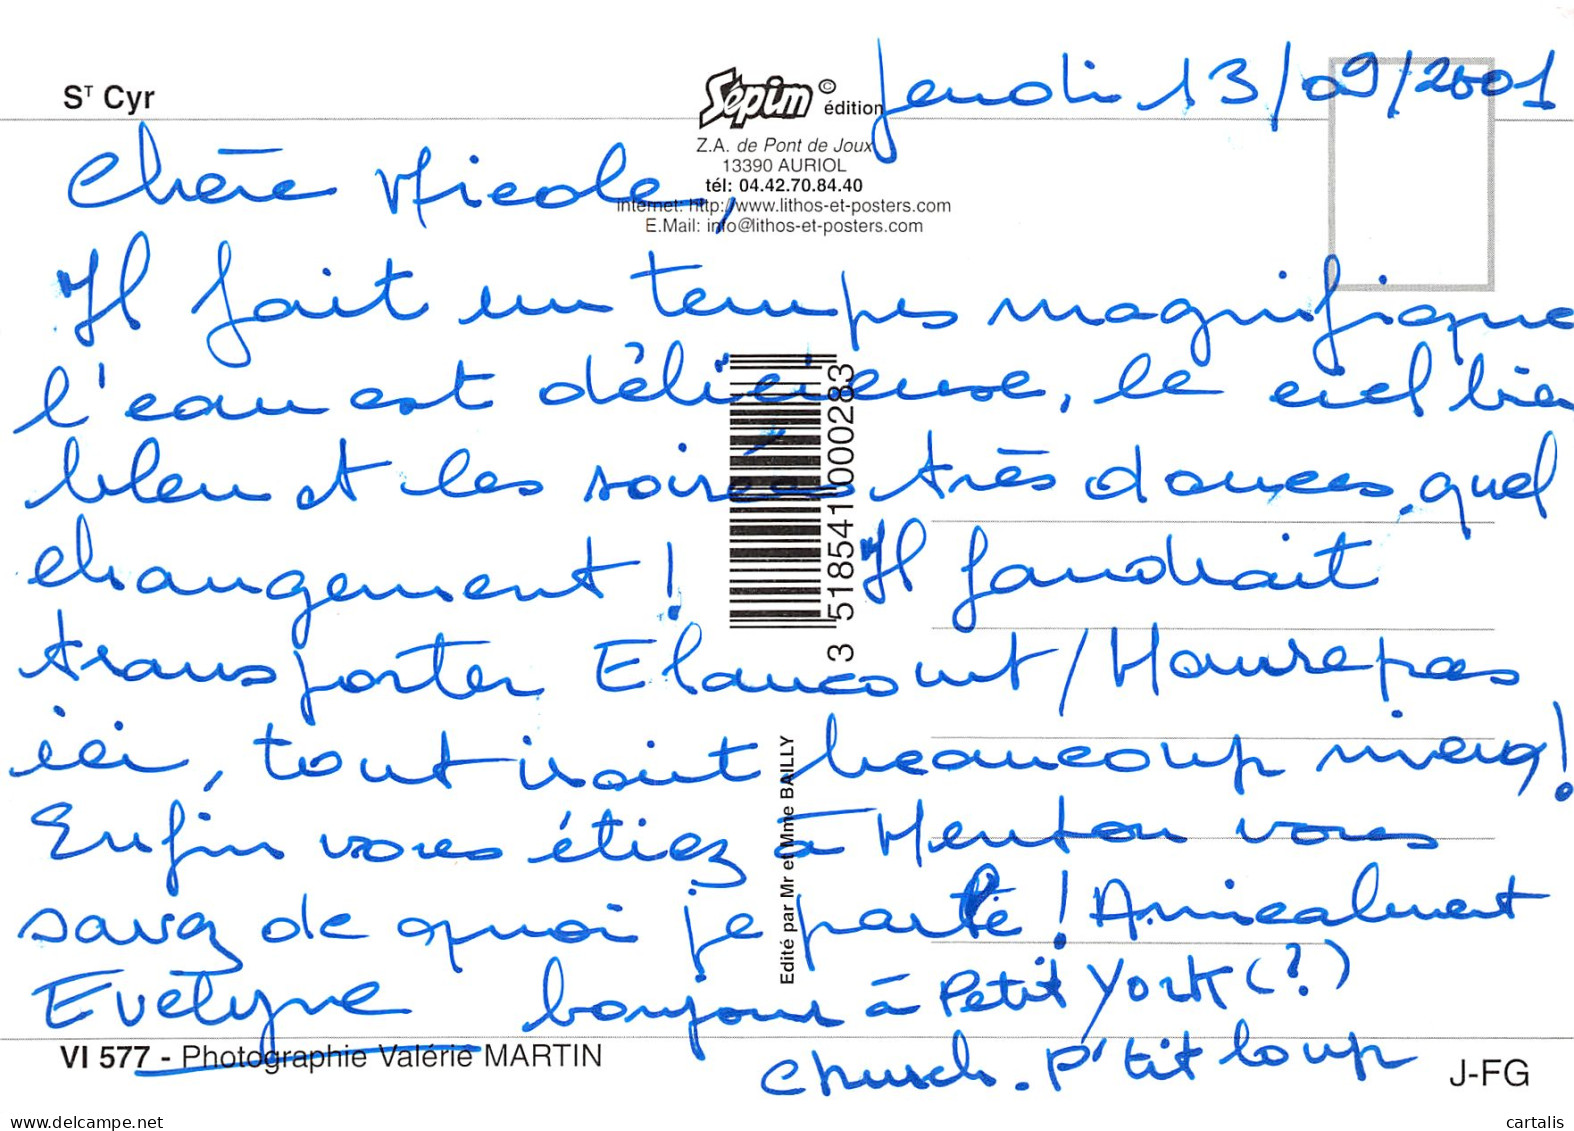 Sᵀ Cyr
Sépim © édition
Jeudi 13/09/2001
Z.A. de Pont de Joux
13390 AURIOL
tél: 04.42.70.84.40
Internet: http://www.lithos-et-posters.com
E.Mail: info@lithos-et-posters.com
Chère Nicole,
Il fait un temps magnifique
l'eau est délicieuse, le ciel bien
bleu et les soirées très douces, quel
changement ! Il faudrait
transporter Elancourt/Maurepas
ici, tout irait beaucoup mieux !
Enfin vous étiez à Menton vous
savez de quoi je parle ! Amicalement
Evelyne bonjour à Petit York (?)
Church. P'tit loup
3 518541 000283
Edité par Mr et Mme BAILLY
VI 577 - Photographie Valérie MARTIN
J-FG
www.delcampe.net
cartalis